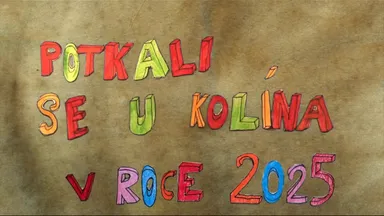 POTKALI
SE U KOLÍNA
V ROCE 2025